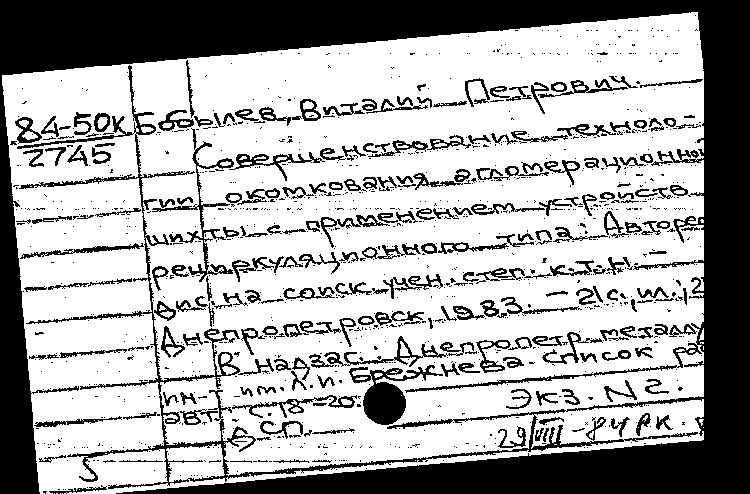 84-50к Бобылев, Виталий Петрович.
2745
Совершенствование техноло-
гии окомкования агломерационной
шихты с применением устройств
рециркуляционного типа: Авторе
дис. на соиск. учен. степ. к.т.н. –
Днепропетровск, 1983. – 21с., ил.; 2
В надзаг.: Днепропетр. металлу
ин-т им. Л.И. Брежнева. Список ра
авт.: с. 18-20.
ЭКЗ. N2.
СП.
29/VIII – 84 РК.
5